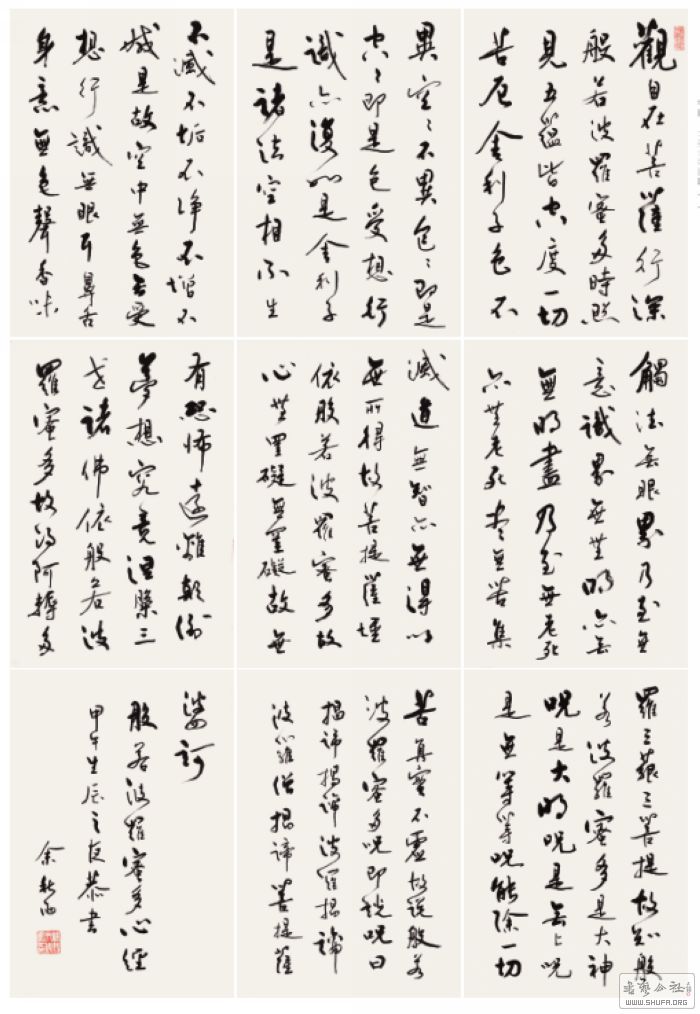 觀自在菩薩行深
般若波羅蜜多時照
見五蘊皆空度一切
苦厄舍利子色不
異空〻不異色〻即是
空〻即是色受想行
識亦復如是舍利子
是諸法空相不生
不滅不垢不淨不增不
減是故空中無色無受
想行識無眼耳鼻舌
身意無色聲香味
觸法無眼界乃至無
意識界無無明亦無
無明盡乃至無老死
亦無老死盡無苦集
滅道無智亦無得以
無所得故菩提薩埵
依般若波羅蜜多故
心無罣礙無罣礙故無
有恐怖遠離顛倒
夢想究竟涅槃三
世諸佛依般若波
羅蜜多故得阿耨多
羅三藐三菩提故知般
若波羅蜜多是大神
呪是大明呪是無上呪
是無等等呪能除一切
苦真實不虛故說般若
波羅蜜多呪即說呪曰
揭諦揭諦波羅揭諦
波羅僧揭諦菩提薩
婆訶
般若波羅蜜多心經
甲午生辰之夜恭書
余秋雨
書藝公社
WWW.SHUFA.ORG